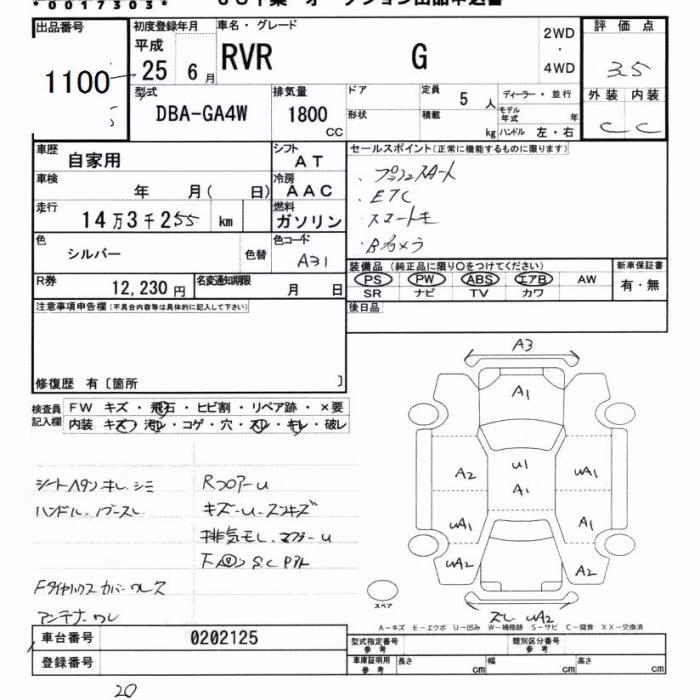 *0017303*
出品番号 初度登録年月 車名・グレード 2WD 評価点
1100 平成 25 6月 RVR G ・ 4WD 3.5
型式 排気量 ドア 定員 ディーラー・並行 外装 内装
DBA-GA4W 1800 CC 形状 積載 5 人 モデル年式 年 C C
kg ハンドル 左・右
車歴 自家用 シフト AT セールスポイント(正常に機能するものに限ります)
車検 年 月( 日) 冷房 AAC ・プッシュスタート
走行 14万3千255 km 燃料 ガソリン ・ETC
・スマートキー
色 シルバー 色替 色コード A31 ・Bカメラ
R券 12,230円 名変通知期限 月 日 装備品(純正品に限り○をつけてください) 新車保証書
PS PW ABS エアB AW 有・無
SR ナビ TV カワ
注意事項申告欄(不具合内容等は具体的に記入して下さい) 後日品
修復歴 有〔箇所 〕
検査員記入欄 FW キズ・飛石・ヒビ割・リペア跡・×要
内装 キズ・汚レ・コゲ・穴・スレ・キレ・破レ
シートヘタリ キレ シミ RフロアーU
ハンドル
キズ-U-スリキズ
Fタイヤハウスカバーワレ
アンテナ ワレ
A3
A1
A2 U1 UA1
A1
UA1 A1
UA2 A2
スレ UA2
スペア
A-キズ E-エクボ U-凹み W-補修跡 S-サビ C-腐食 XX-交換済
車台番号 0202125 型式指定番号 参考 類別区分番号 参考
登録番号 車庫証明用 参考 長さ cm 幅 cm 高さ cm
20